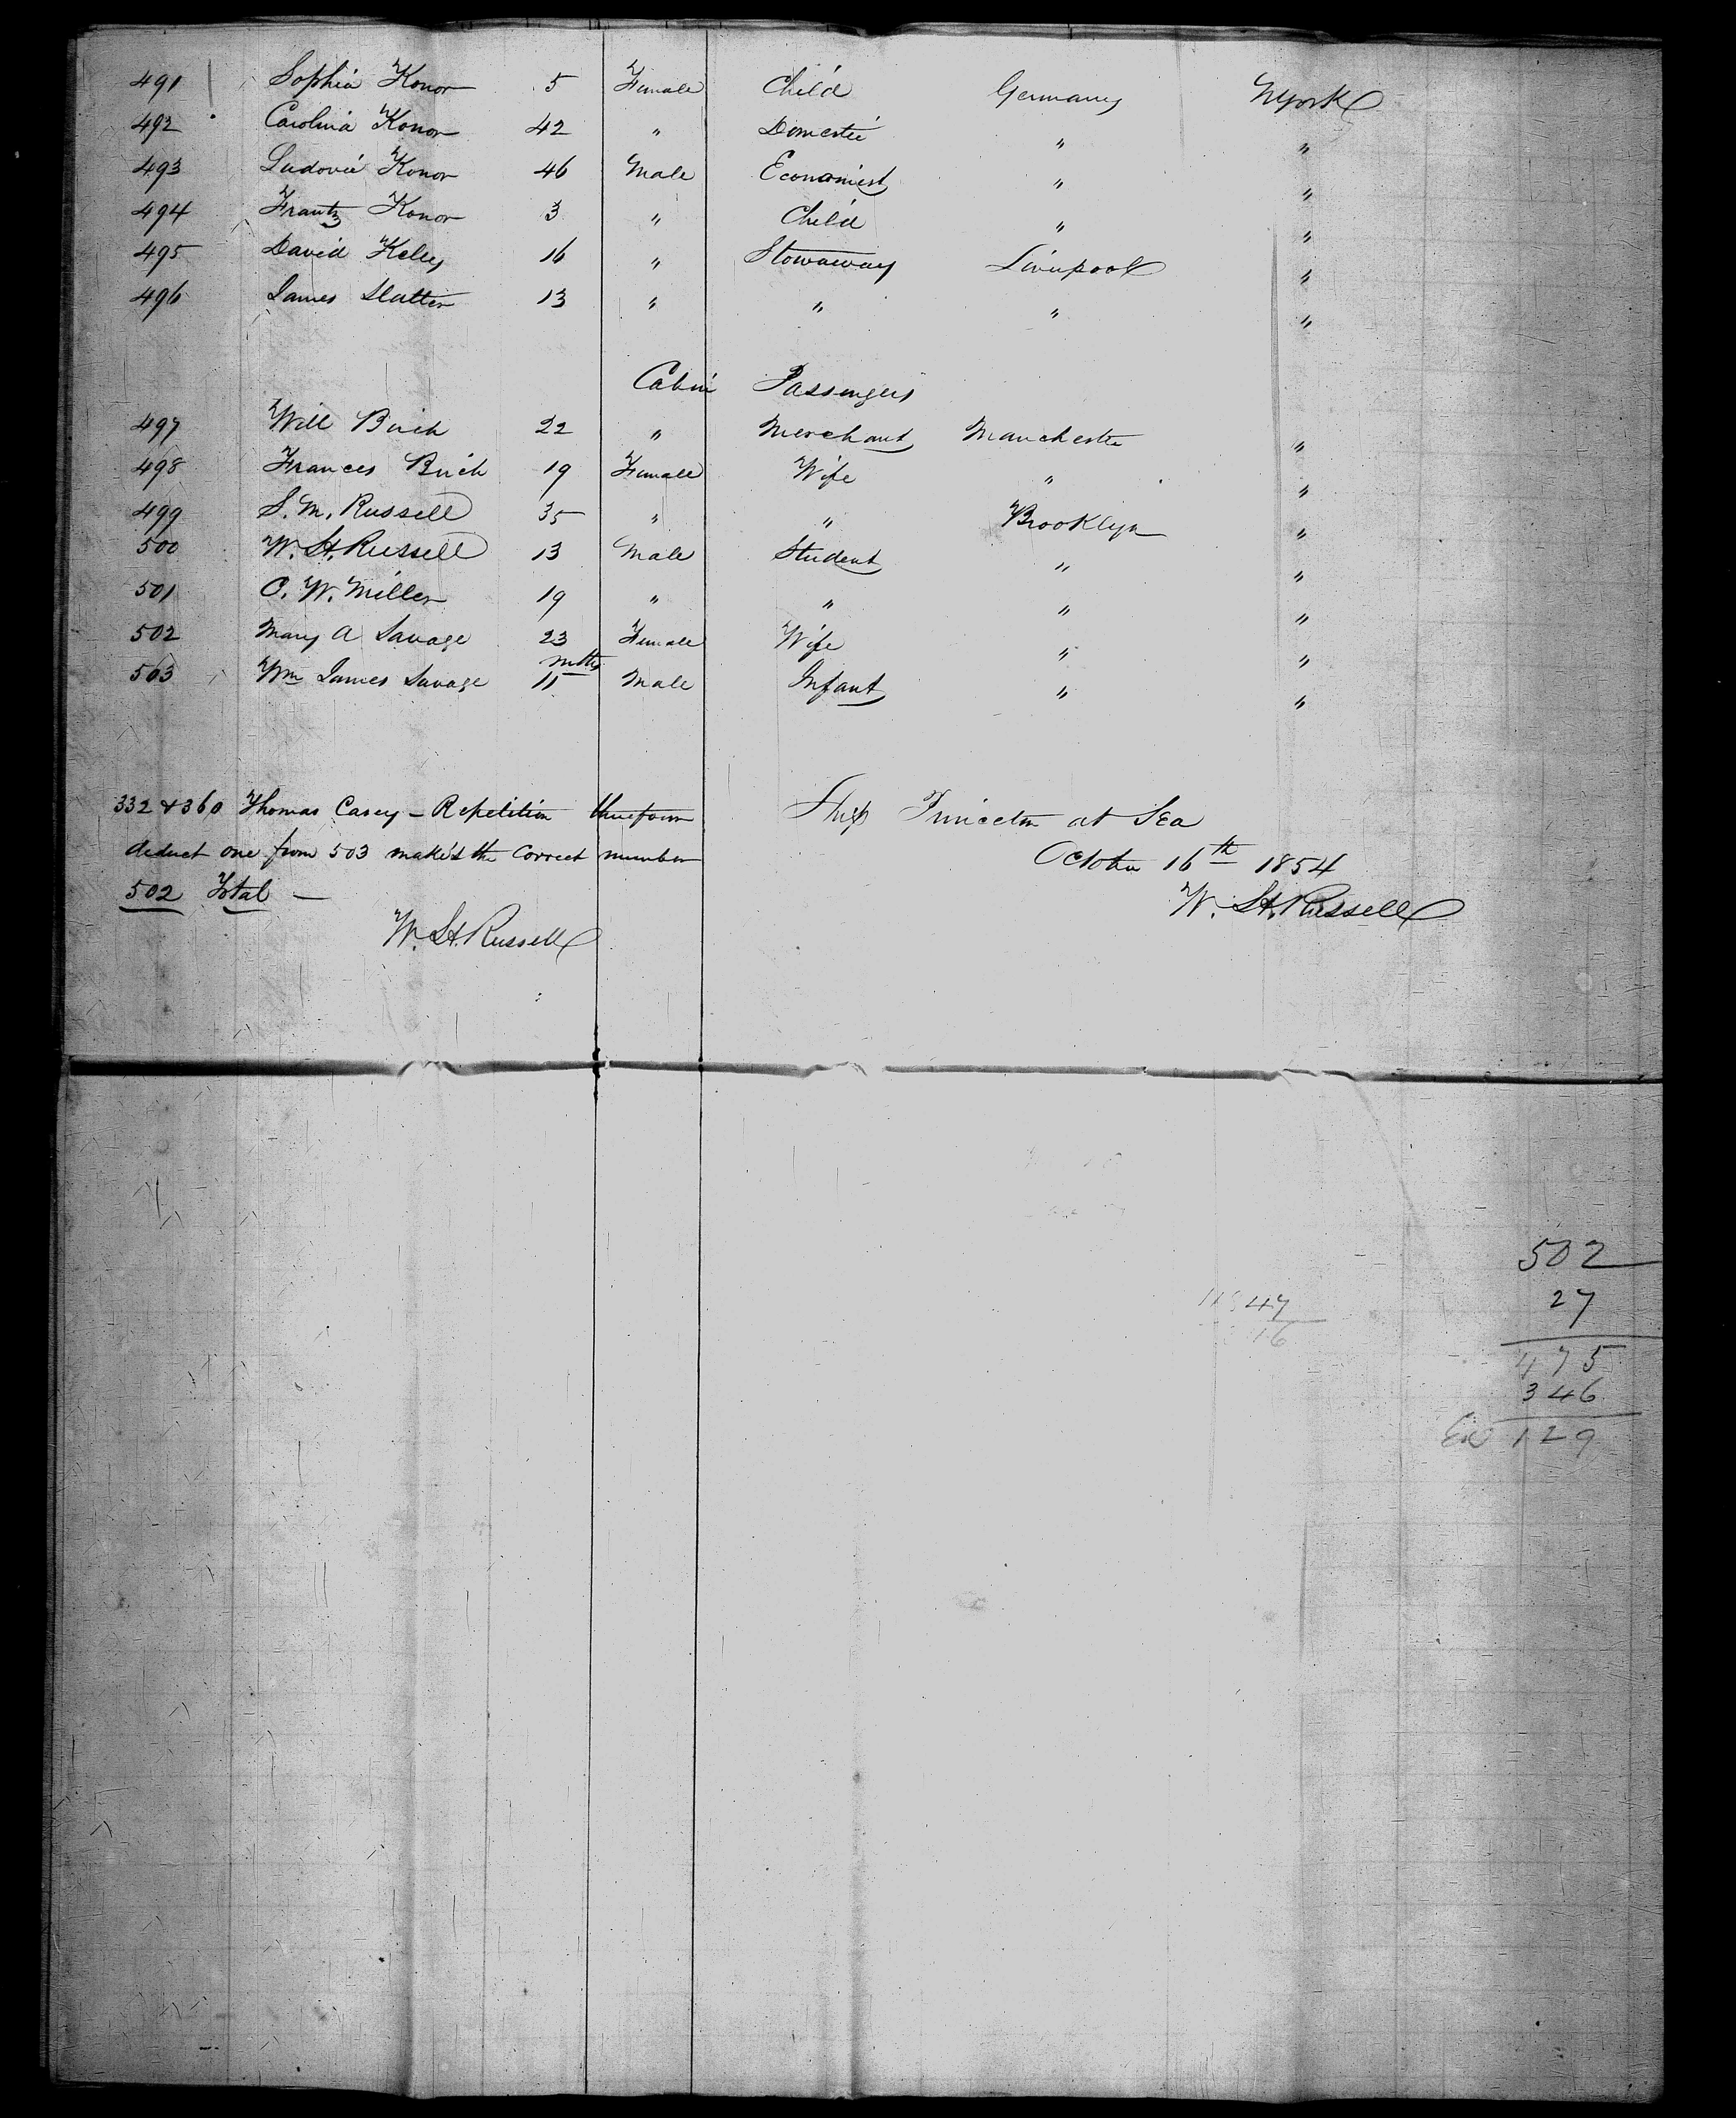 491 Sophia Konor 5 Female Child Germany NYork
492 Carolina Konor 42 " Domestic " "
493 Ludovic Konor 46 Male Economist " "
494 Frantz Konor 3 " Child " "
495 David Kelly 16 " Stowaway Liverpool "
496 James Slatter 13 " " " "
Cabin Passengers
497 Will Birch 22 " Merchant Manchester "
498 Frances Birch 19 Female Wife " "
499 S. M. Russell 35 " " Brooklyn "
500 W. H. Russell 13 Male Student " "
501 C. W. Miller 19 " " " "
502 Mary A Savage 23 Female Wife " "
503 Wm James Savage 11 mths Male Infant " "
332 & 360 Thomas Casey - Repetition therefore
deduct one from 503 makes the correct number
502 Total —
W. H. Russell
Ship Princeton at Sea
October 16th 1854
W. H. Russell
502
27
475
346
129
47
16